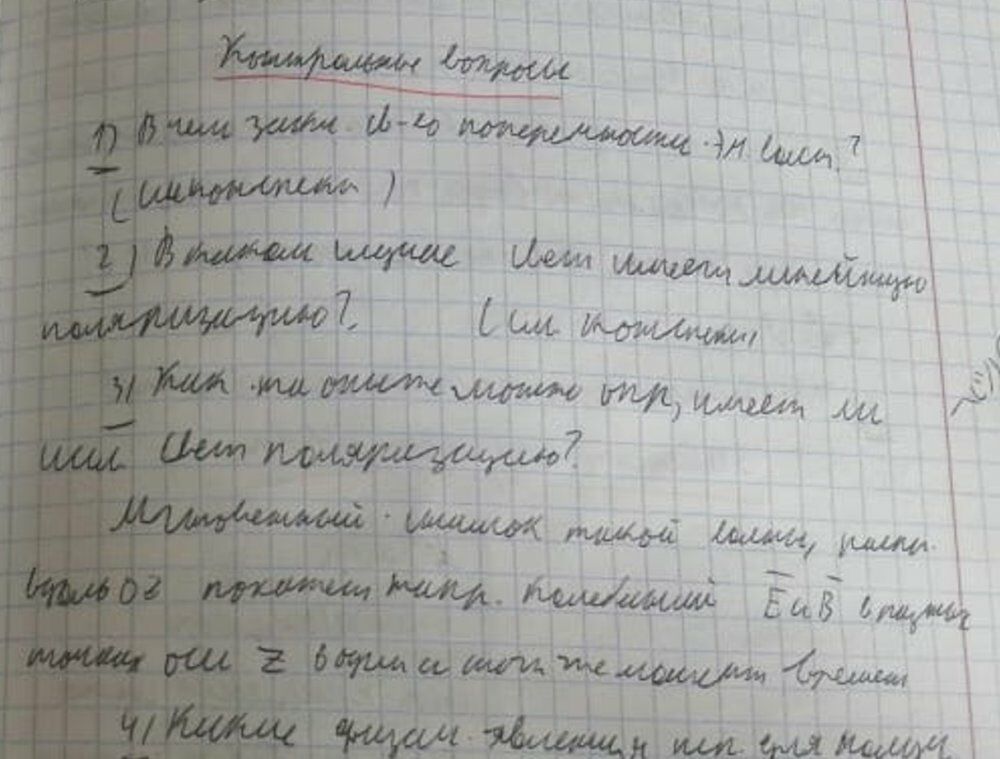 Контрольные вопросы
1) В чем закл. св-во поперечности ЭМ волн?
(см конспект)
2) В каком случае свет имеет линейную
поляризацию? (см конспект)
3) Как на опыте можно опр, имеет ли
свет поляризацию?
Мгновенный снимок такой волны, распр.
вдоль OZ покажет напр. колебаний E и B в разных
точках оси Z в один и тот же момент времени
4) Какие физич. явления исп. для получ